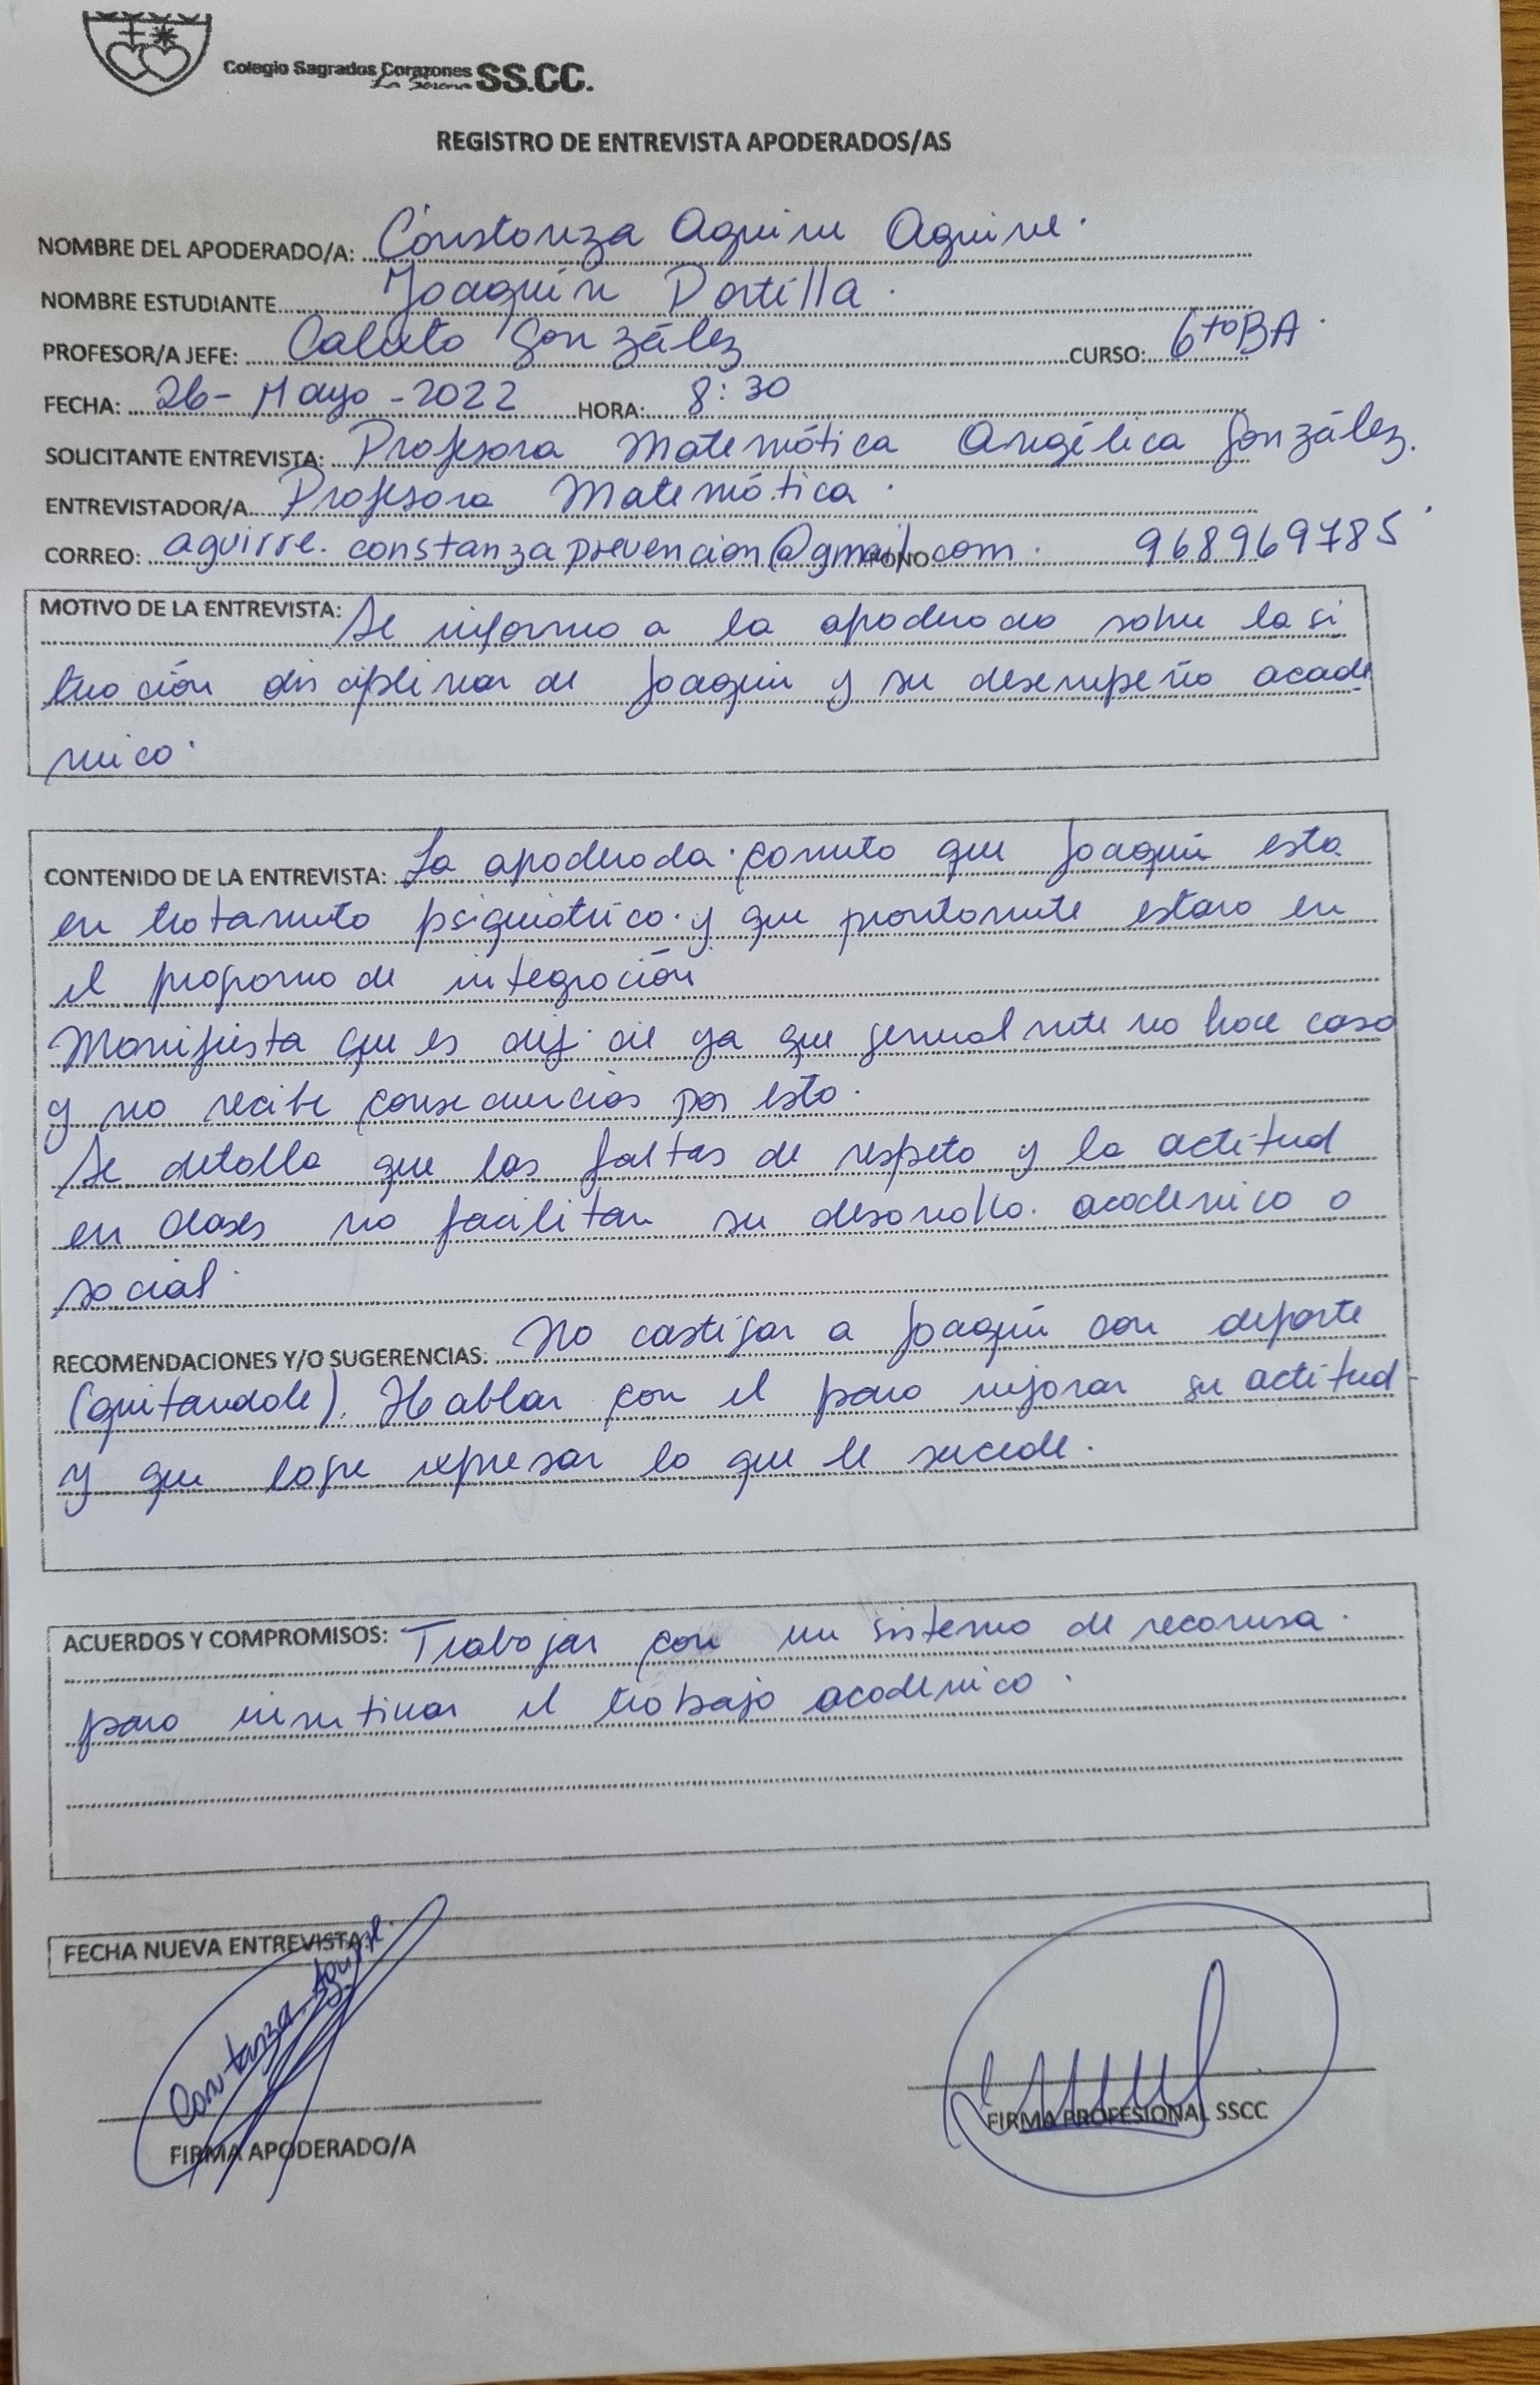 Colegio Sagrados Corazones SS.CC.
La Serena
REGISTRO DE ENTREVISTA APODERADOS/AS
NOMBRE DEL APODERADO/A: Constanza Aguirre Aguirre.
NOMBRE ESTUDIANTE Joaquín Portilla.
PROFESOR/A JEFE: Calixto González CURSO: 6to BA.
FECHA: 26- Mayo -2022 HORA: 8:30
SOLICITANTE ENTREVISTA: Profesora Matemática Angélica González.
ENTREVISTADOR/A Profesora Matemática.
CORREO: aguirre.constanzaprevencion@gmail.com. FONO 968969785
MOTIVO DE LA ENTREVISTA: Se informa a la apoderada sobre la si
tuación disciplinar de Joaquín y su desempeño acadé
mico.
CONTENIDO DE LA ENTREVISTA: La apoderada comenta que Joaquín esta
en tratamiento psiquiatrico y que prontamente estara en
el programa de integración
Manifiesta que es dificil ya que generalmente no hace caso
y no recibe consecuencias por esto.
Se detalla que las faltas de respeto y la actitud
en clases no facilitan su desarrollo academico o
social.
RECOMENDACIONES Y/O SUGERENCIAS: No castigar a Joaquín con deporte
(quitandole). Hablar con el para mejorar su actitud
y que logre expresar lo que le sucede.
ACUERDOS Y COMPROMISOS: Trabajar con un sistema de recompensa
para incentivar el trabajo academico.
FECHA NUEVA ENTREVISTA:
Constanza Aguirre
FIRMA APODERADO/A FIRMA PROFESIONAL SSCC